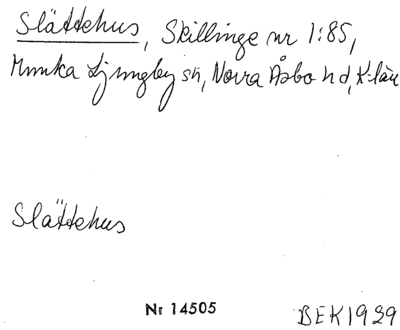 Slättehus, Skillinge nr 1:85,
Munka Ljungby sn, Norra Åsbo hd, K-län
Slättehus
Nr 14505
BEK 1939